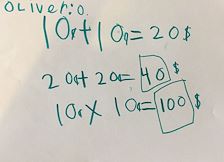 OLiveriO.
10+10=20$
20+20=40$
10X10=100$